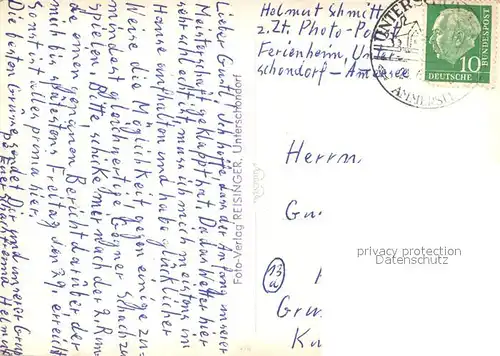 Helmut Schmitt
z. Zt. Photo-Po
Ferienheim, Unter
schondorf-Ammersee
UNTERSCHO
AMMERSEE
10
DEUTSCHE
BUNDESPOST
Herrn
Gu
13a
Gru
Ku
privacy protection
Datenschutz
Foto-Verlag REISINGER, Unterschondorf
Lieber Gustl! Ich hoffe, dass der Anfang unserer
Meisterschaft geklappt hat. Da das Wetter hier
sehr schlecht ist, muss ich mich meistens im
Hause aufhalten und habe glücklicher
Weise die Möglichkeit, gegen einige zu-
mindest gleichwertige Gegner Schach zu
spielen. Bitte schicke mir nach der 2. Run
de einen genauen Bericht darüber, der
mich bis spätestens Freitag, den 29. erreicht
Sonst ist alles prima hier.
Die besten Grüße sendet Dir und unserer Grup
Helmut